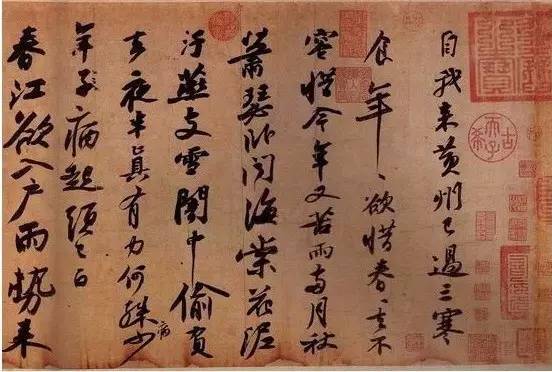 自我来黄州已過三寒
食年〻欲惜春〻去不
容惜今年又苦雨兩月秋
蕭瑟卧聞海棠花泥
汙燕支雪闇中偷負
去夜半真有力何殊少病
年子病起須已白
春江欲入户雨勢来
古希天子